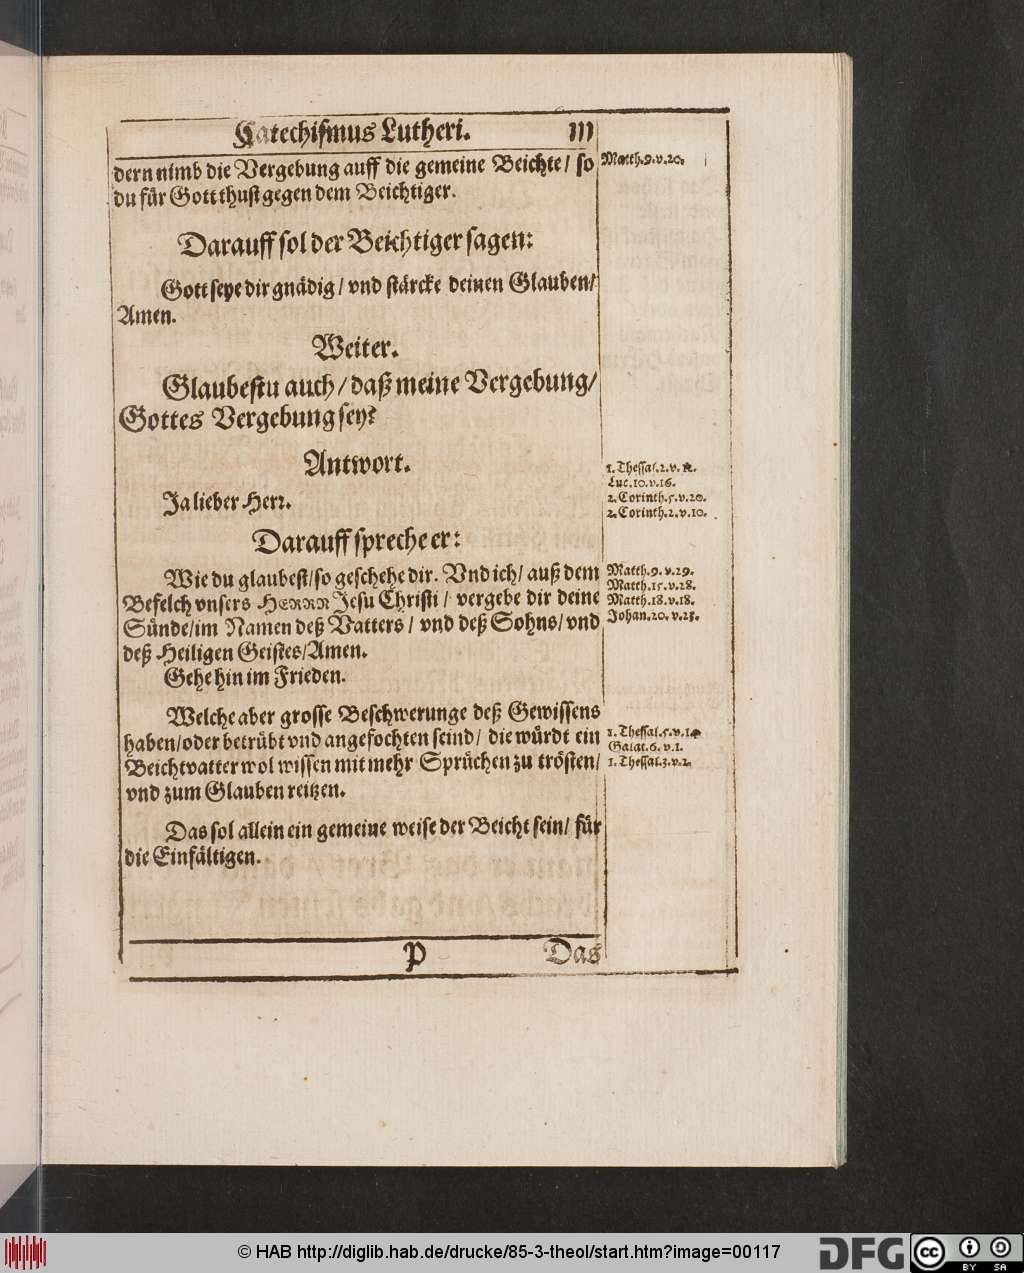 Catechiſmus Lutheri. 111
dern nimb die Vergebung auff die gemeine Beichte / ſo
du für Gott thuſt gegen dem Beichtiger.
Matth. 9. v. 20.
Darauff ſol der Beichtiger ſagen:
Gott ſeye dir gnädig / vnd ſtärcke deinen Glauben /
Amen.
Weiter.
Glaubeſtu auch / daß meine Vergebung /
Gottes Vergebung ſey?
Antwort.
Ja lieber Herr.
1. Theſſal. 2. v.
Luc. 10. v. 16.
2. Corinth. 5. v. 20.
2. Corinth. 2. v. 10.
Darauff ſpreche er:
Wie du glaubeſt / ſo geſchehe dir. Vnd ich / auß dem
Befelch vnſers HERRN Jeſu Chriſti / vergebe dir deine
Sünde / im Namen deß Vatters / vnd deß Sohns / vnd
deß Heiligen Geiſtes / Amen.
Gehe hin im Frieden.
Matth. 9. v. 29.
Matth. 15. v. 28.
Matth. 18. v. 18.
Johan. 20. v. 23.
Welche aber groſſe Beſchwerunge deß Gewiſſens
haben / oder betrübt vnd angefochten ſeind / die würdt ein
Beichtvatter wol wiſſen mit mehr Sprüchen zu tröſten /
vnd zum Glauben reitzen.
1. Theſſal. 5. v. 14
Galat. 6. v. 1.
1. Theſſal. 3. v. 2.
Das ſol allein ein gemeine weiſe der Beicht ſein / für
die Einfältigen.
P Das
© HAB http://diglib.hab.de/drucke/85-3-theol/start.htm?image=00117
DFG
cc BY SA